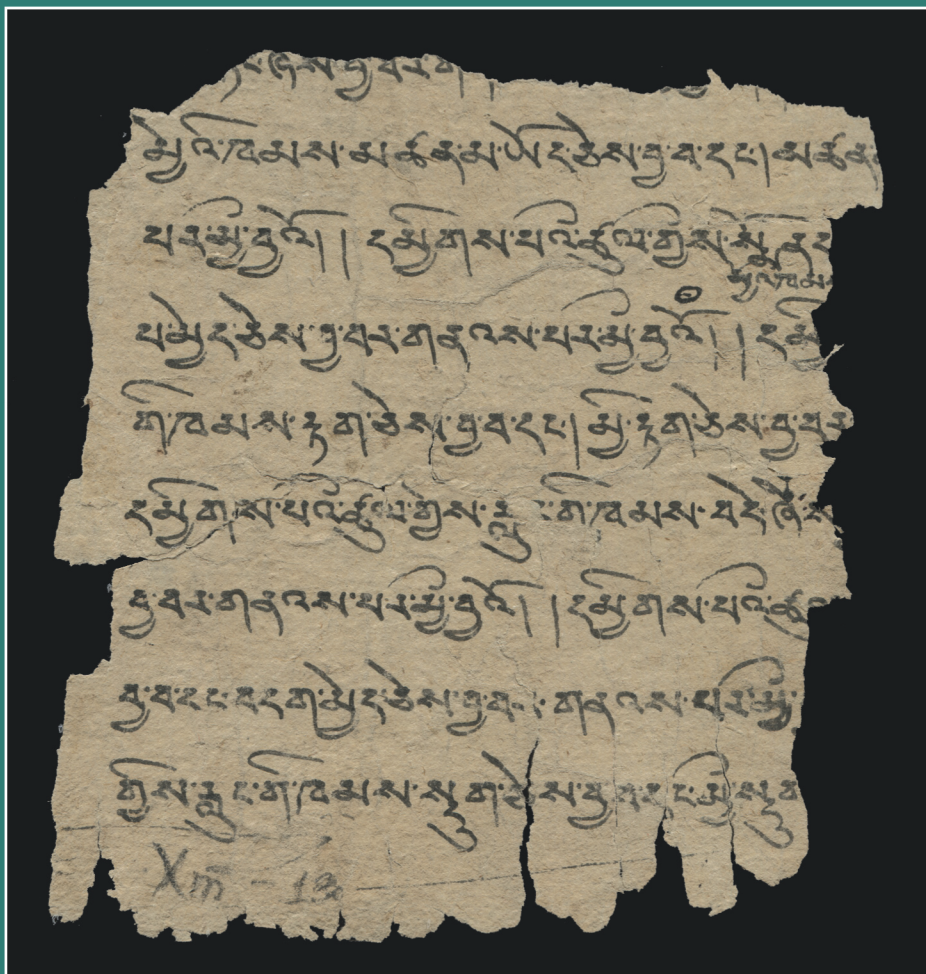 ཞེས་བྱ་བར་ག
མྱེའི་ཁམས་མཚན་མ་ཡོད་ཅེས་བྱ་བ་དང་། མཚན
པར་མྱི་བྱའོ། ། དམྱིགས་པའི་ཚུལ་གྱིས་སྨོན
མྱེའི་ཁམས
པ་མྱེད་ཅེས་བྱ་བར་གནས་པར་མྱི་བྱའོ། ། དམྱི
གི་ཁམས་རྟག་ཅེས་བྱ་བ་དང་། མྱི་རྟག་ཅེས་བྱ་བར
དམྱིགས་པའི་ཚུལ་གྱིས་རླུང་གི་ཁམས་བདེ་ཞེས
བྱ་བར་གནས་པར་མྱི་བྱའོ། ། དམྱིགས་པའི་ཚུ
བྱ་བ་དང་བདག་མྱེད་ཅེས་བྱ་བར་གནས་པར་མྱི
གྱིས་རླུང་གི་ཁམས་སྡུག་ཅེས་བྱ་བ་དང་མྱི་སྡུག
XIII - 13